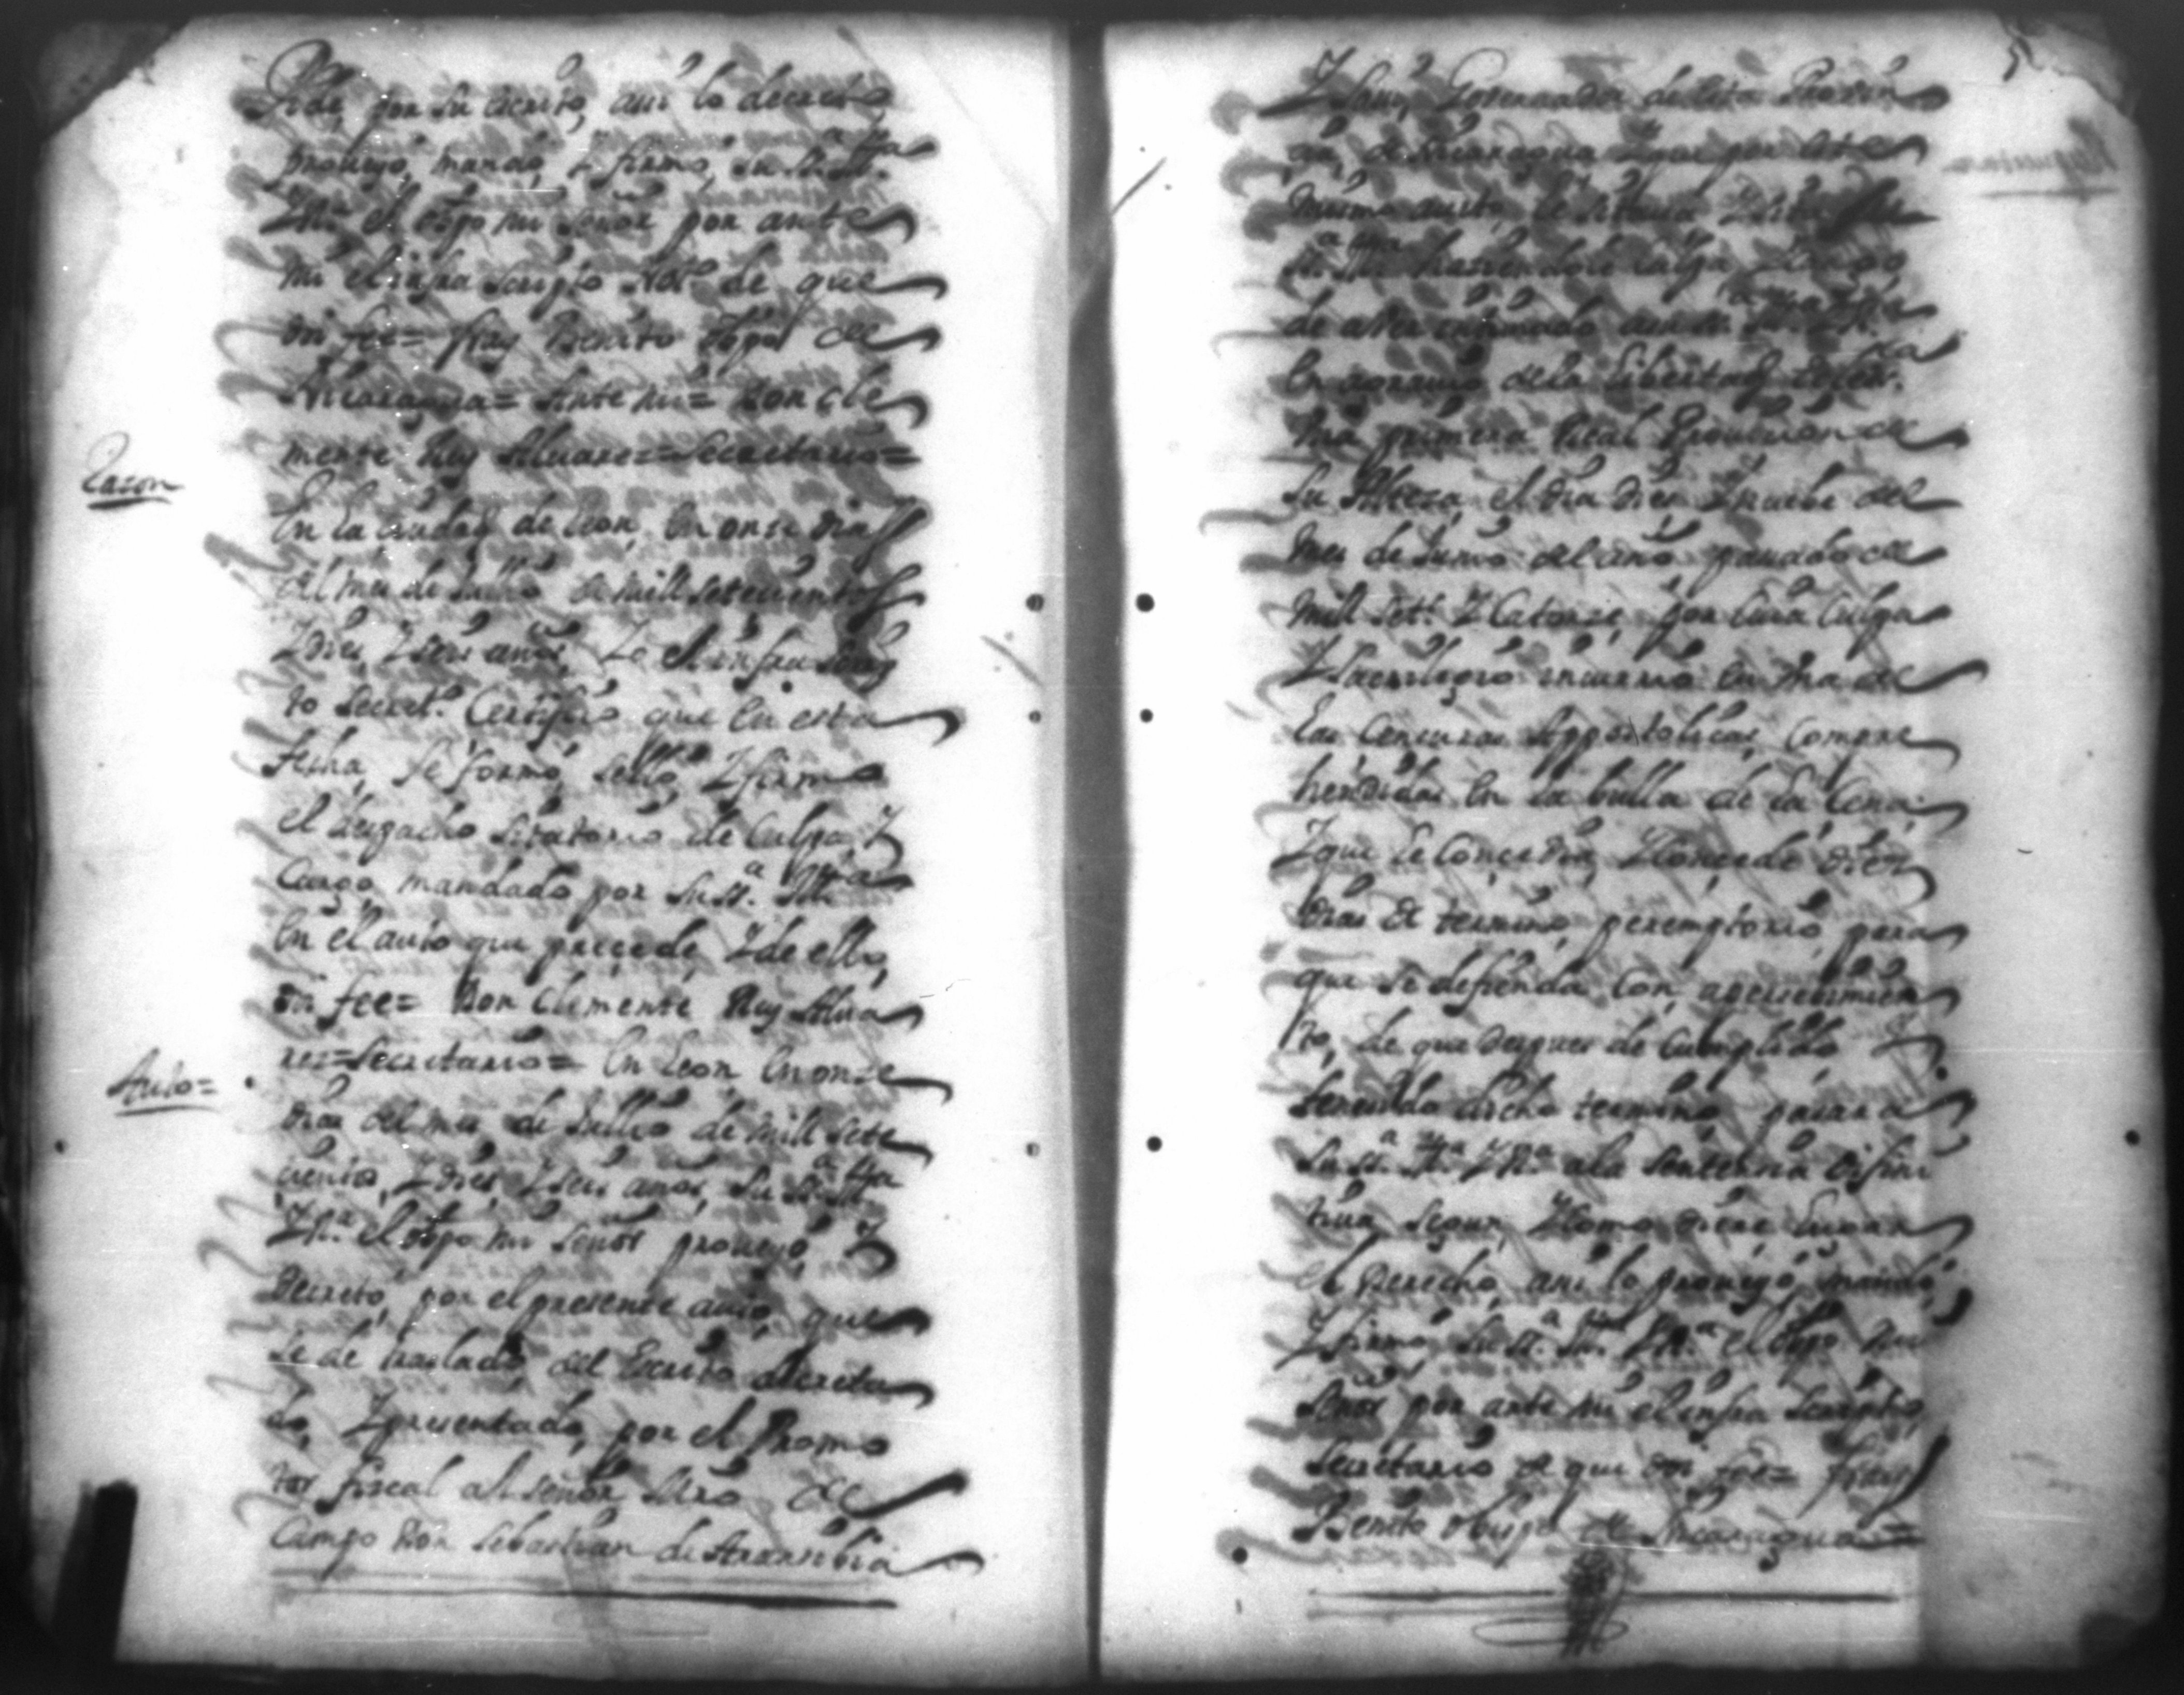 Pide por su escrito, assi lo decretó
proueyó, mandó, y firmó, su ss.ª Illma
y R.ma el obpo mi señor por ante
mi el infra scripto Not.º de que
doi fee= fray Benito obpo de
Nicaragua= Ante mi= Don Cle
mente Rey Aluarez= Secretario=
Razon
En la ciudad de Leon, en onse dias
del mes de Jullio de mill setecientos
y dies, y seis años, Yo el infra scrip
to Secret.º Certifico que en esta
fecha, se formó, selló, y firmó
el despacho sitatorio de Culpa, y
Cargo, mandado por su ss.ª Illma
en el auto que precede, y de ello,
doi fee= Don Clemente Rey Alua
rez= Secretario= En Leon en onze
Auto=
dias del mes de Jullio de mill sete
cientos, y dies, y seis años, su ss.ª Illma
y R.ma el obpo mi señor proueyó, y
Decretó, por el presente auto, que
se dé traslado, del Escrito, decreta
do, y presentado, por el Promo
tor fiscal al señor Mro de
Campo Don Sebastian de Aransibia
y Sani, Gouernador de esta Prouin
cia, de Nicaragua y que por este
mismo auto, le sitaua y sitó su
ss.ª Illma hasiendole culpa
la primera Real Prouision de
su Alteza, el dia dies y nuebe del
mes de Junio del año passado de
mill set.s y Catorze, por cuia Culpa
y Sacrilegio incurrio en una de
las Censuras Appostolicas, Compre
hendidas en la bulla de la Cena.
y que le Concedia, y Concede dies
dias de termino, peremptorio, para
que se defienda, con, apersebimien
to, de que despues de Cumplido y
fenecido dicho termino, pasara
su ss.ª Ill.ª y R.ª a la sentensia difini
tiua, segun, y como
el Derecho, assi lo proueyó, mandó
y firmó, su ss.ª Ill.ma y R.ma el obpo mi
señor por ante mi el infra Scripto,
Secretario de que doi fee= fray
Benito obispo de Nicaragua=